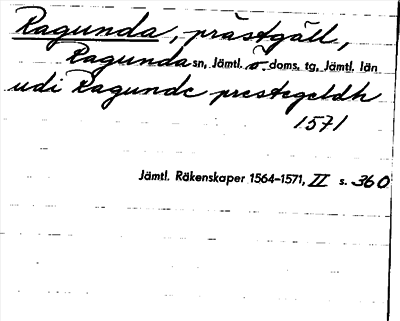 Ragunda, prästgäll,
Ragunda sn, Jämtl. ö. doms. tg, Jämtl. län
udi Ragunde prestegeldh
1571
Jämtl. Räkenskaper 1564-1571, II s. 360